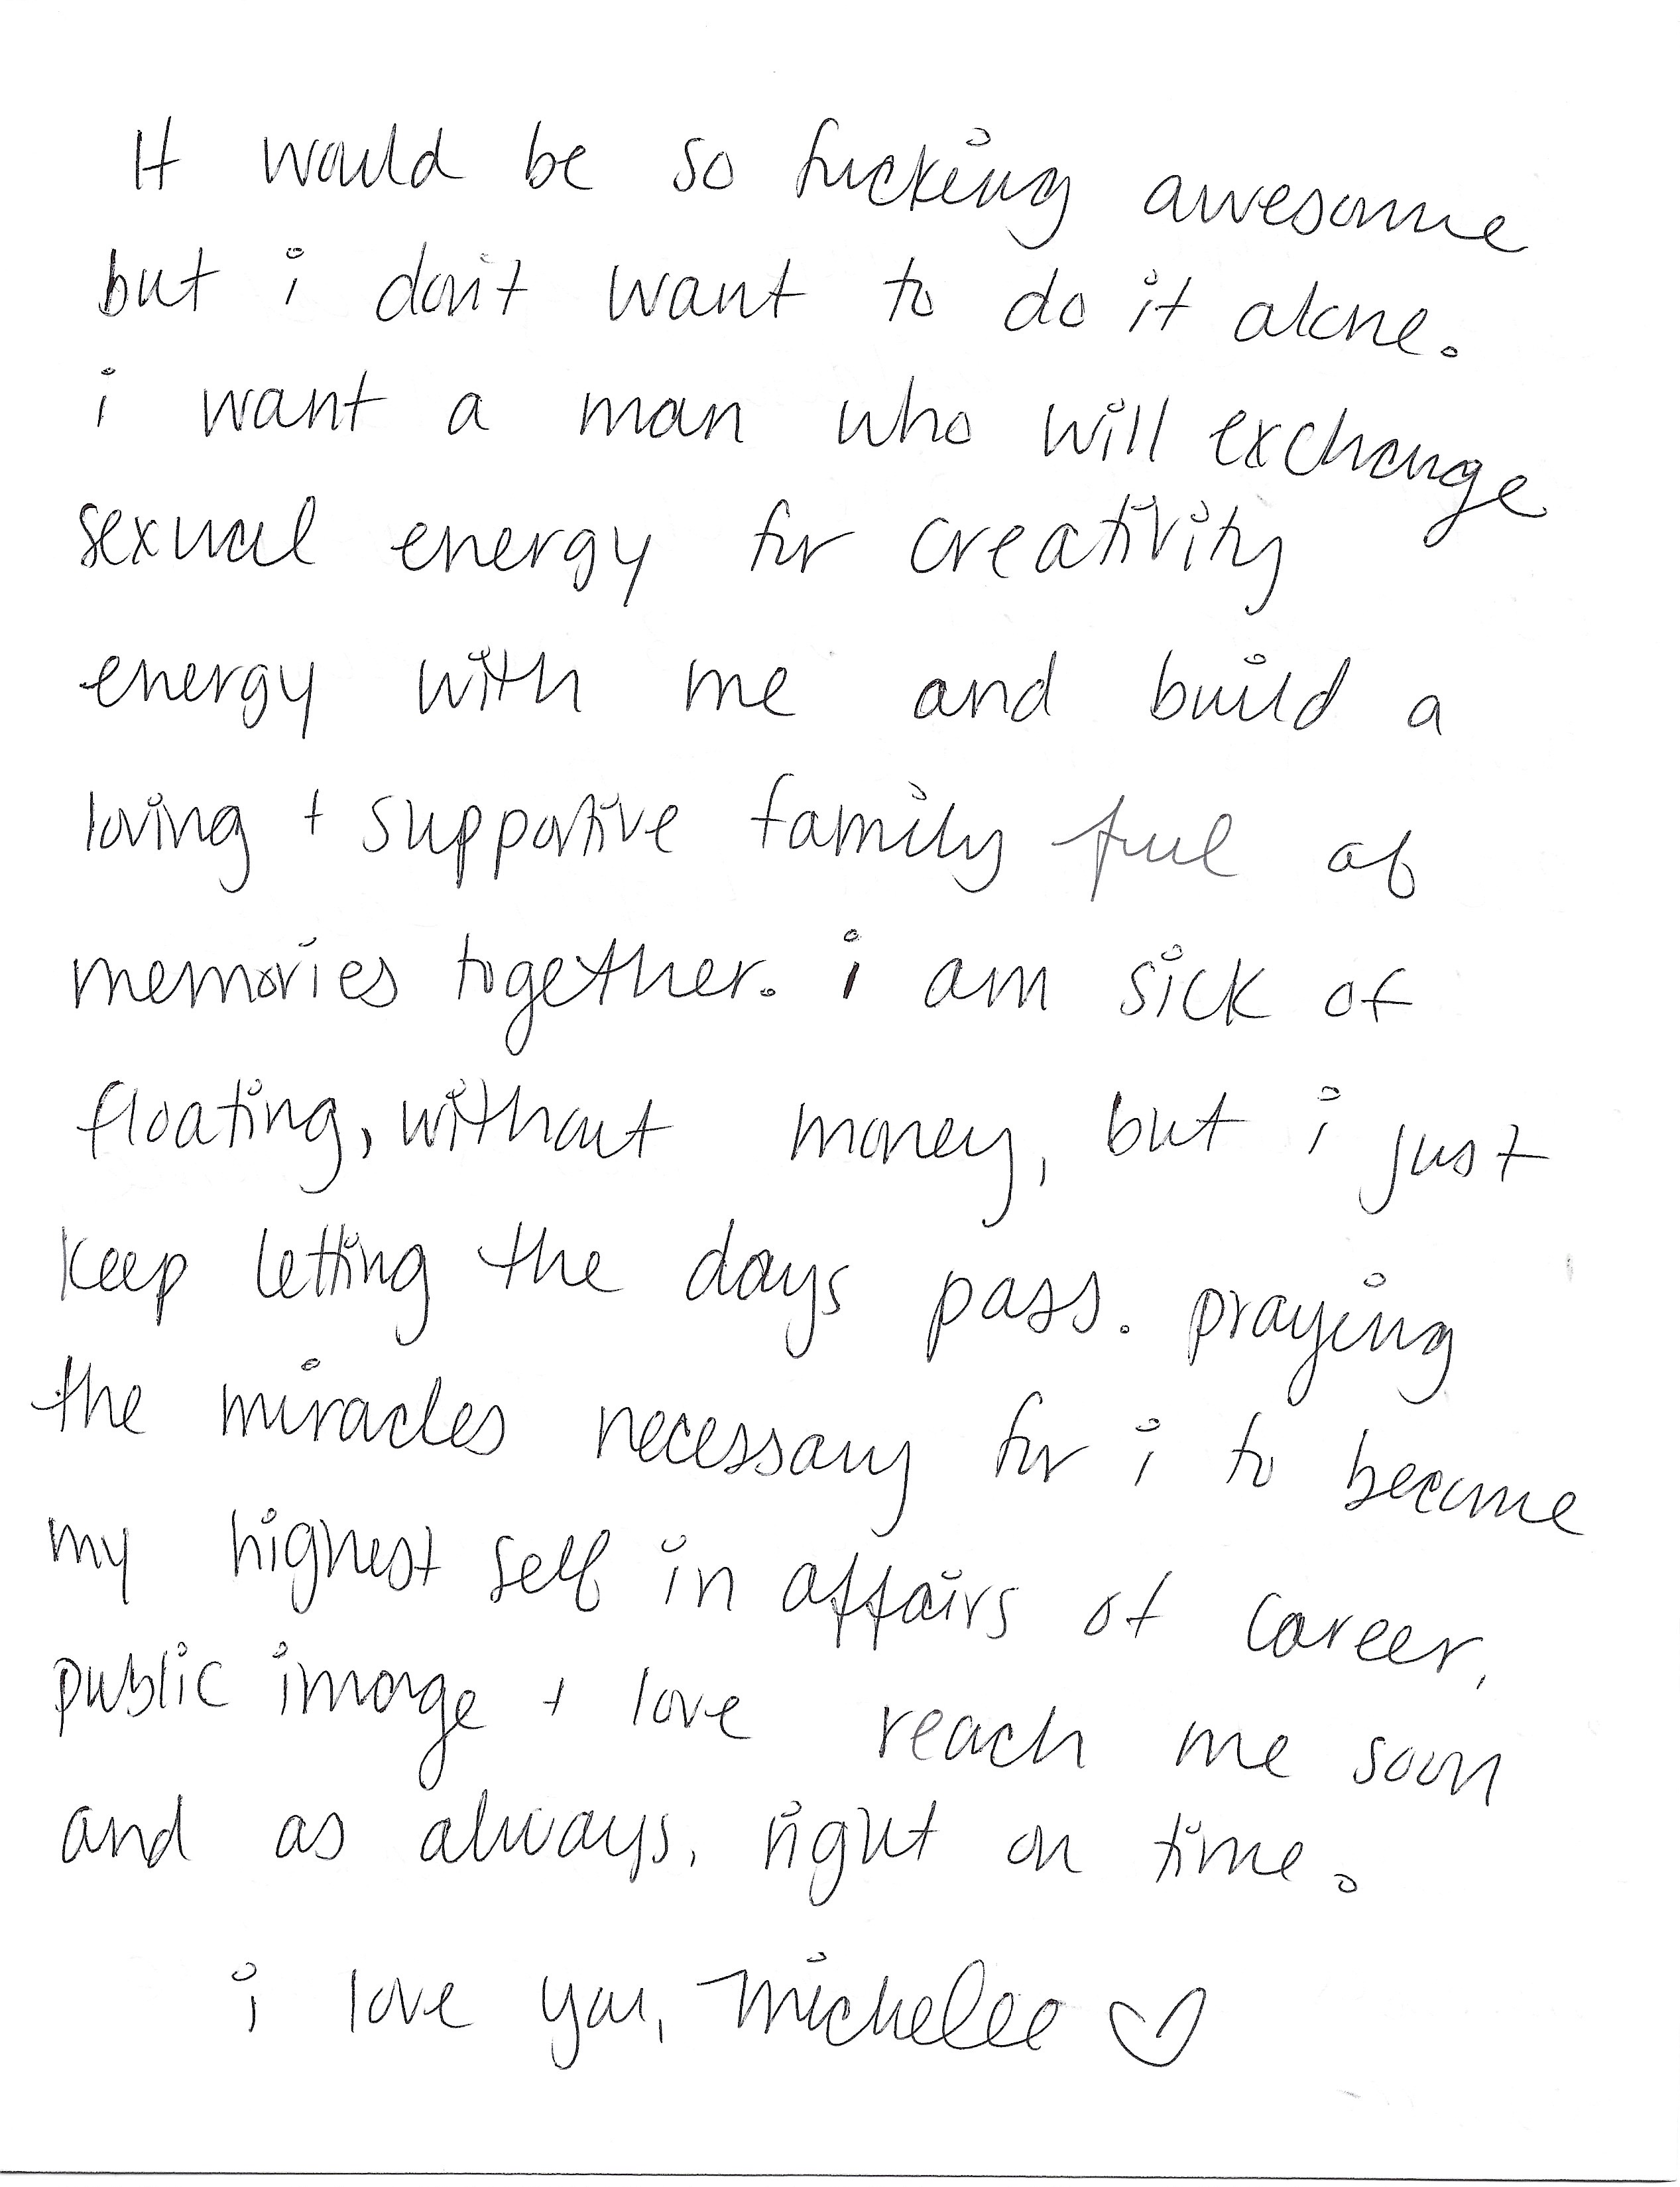 It would be so fucking awesome
but i don't want to do it alone.
i want a man who will exchange
sexual energy for creativity
energy with me and build a
loving + supportive family full of
memories together. i am sick of
floating, without money, but i just
keep letting the days pass. praying
the miracles necessary for i to become
my highest self in affairs of career,
public image + love reach me soon
and as always, right on time.
i love you, michelle ♡